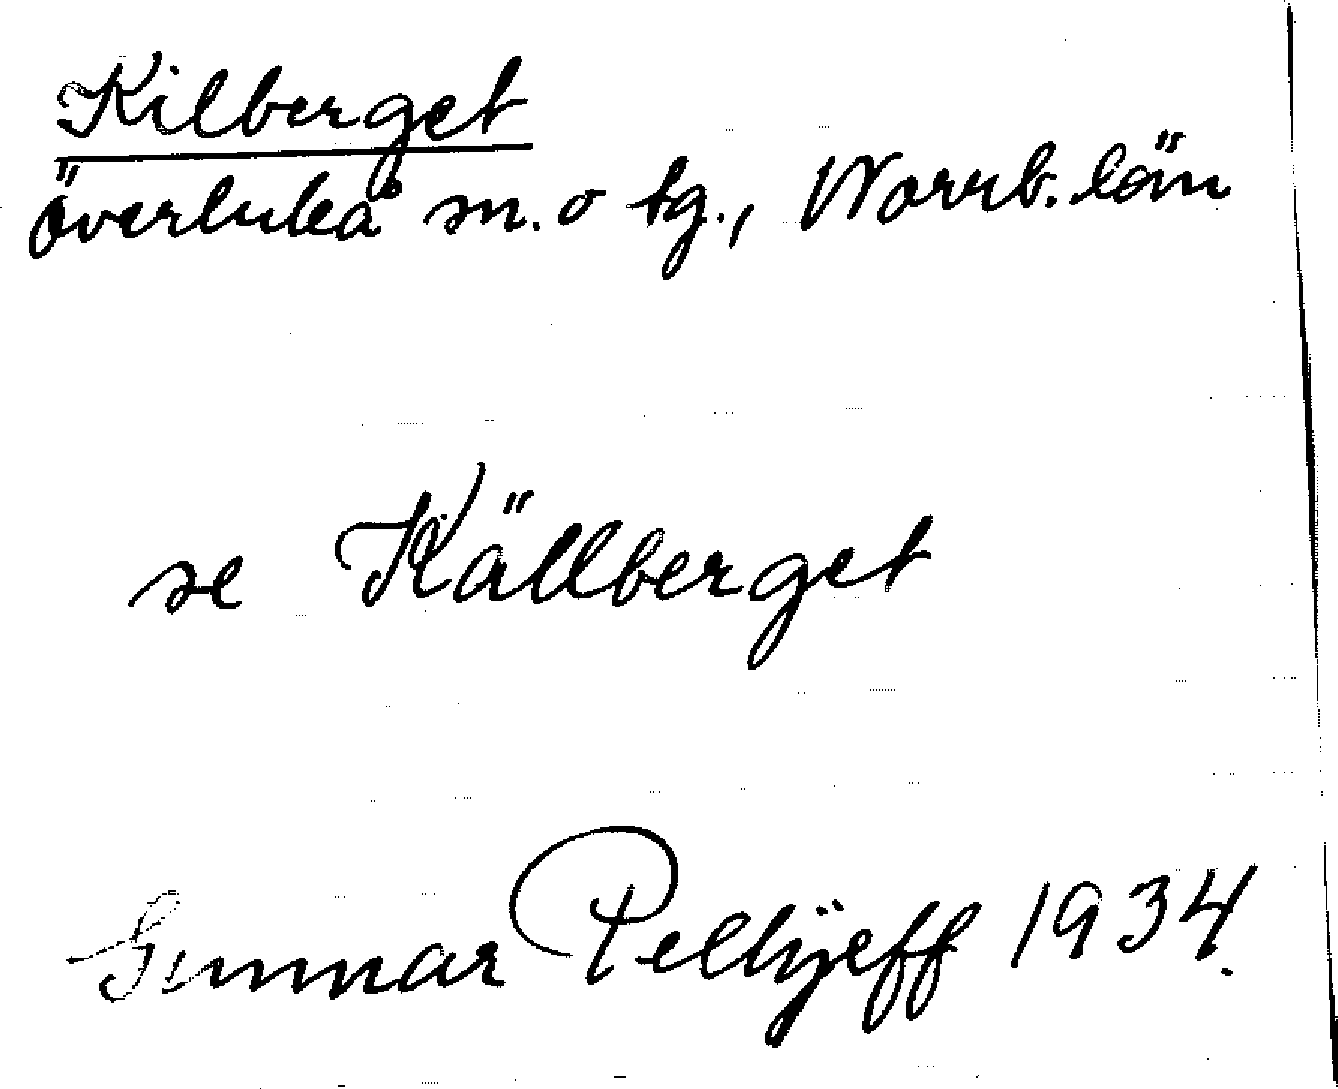 Kilberget
Överluleå sn. o tg., Norrb. län
se Källberget
Gunnar Pellijeff 1934.